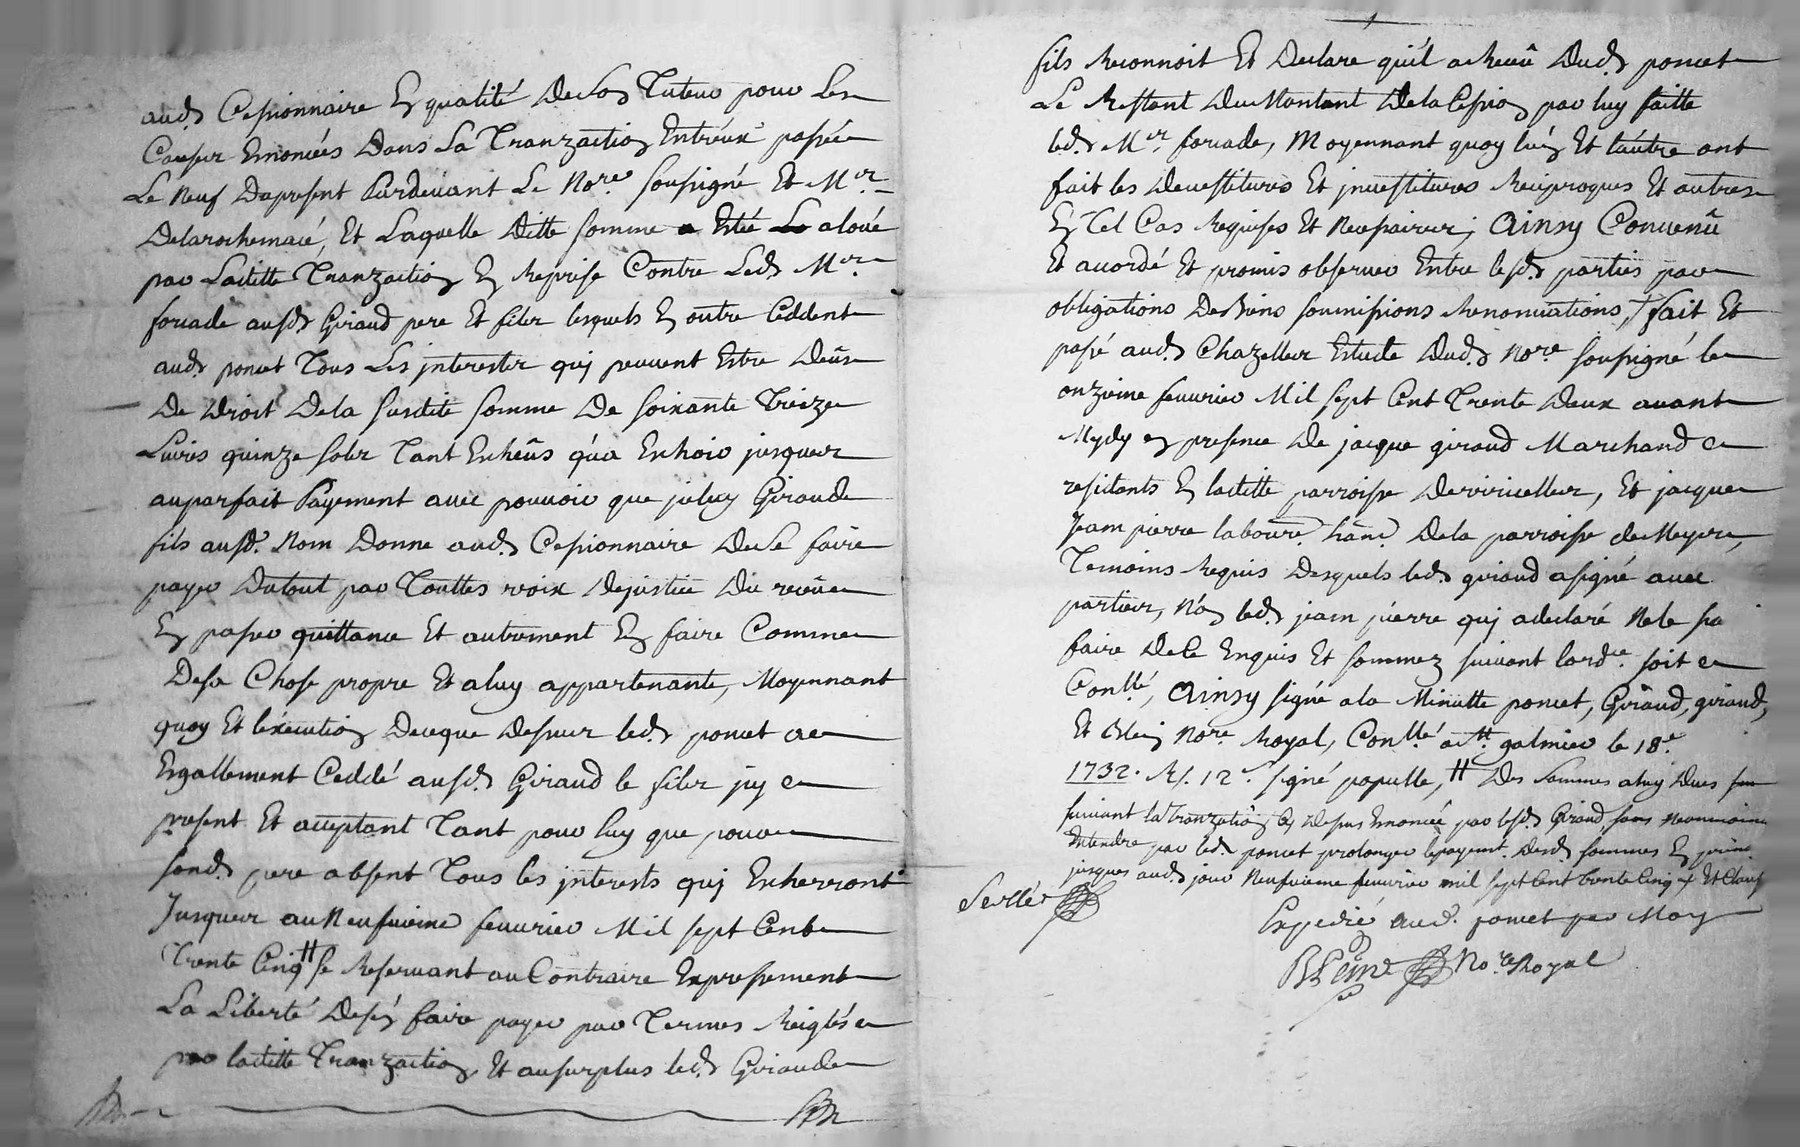 aud. Cessionnaire En qualité De Son Tuteur pour Les
Causes Enoncées Dans La Tranzaction Entreux passée
Le Neuf Dupresent Pardevant Le Nore. soussigné Et Mer.
Delarochemacé, Et Laquelle Ditte somme a Esté aloüé
par Laditte Tranzaction En Reprise Contre Led. Mer.
foriade ausd. Giraud pere Et fils lesquels En outre Ceddent
aud. poncet Tous Les jnterestz quj peuvent Estre Deüs
De Droit De la susditte somme De soixante Treize
Livres quinze sols Tant Escheüs qu'a Eschoir jusques
auparfait Payement avec pouvoir que jceluy Giraud
fils ausd. Nom Donne aud. Cessionnaire De Se faire
payer Dutout par Touttes voix Dejustice Du receu
En passer quittance Et autrement En faire Comme
Desa Chose propre Et aluy appartenante, Moyennant
quoy Et l'execution Deceque Dessus led. poncet a
Esgallement Ceddé ausd. Giraud le fils jcy
present Et acceptant Tant pour luy que pour
sond. pere absent Tous les jnterests quj Escherront
Jusques au Neufvieme fevvrier Mil sept Cent
Trente Cinq # se Reservant au Contraire Expressement
La Liberté Desén faire payer par Termes Reiglés
par laditte Tranzaction, Et ausurplus led. Giraud
fils Reconnoit Et Declare qu'il a Receü Dud. poncet
Le Restant Du Montant Dela Cession par luy faitte
led. Mer. foriade, Moyennant quoy l'un Et l'autre ont
fait les Devestitures Et jnvestitures Reciproques Et autres
En Tel Cas Requises Et Necessaires; Ainsy Convenü
Et accordé Et promis observer Entre lesd. parties par
obligations De Biens soumissions Renonciations, fait Et
passé aud. Chazelles Estude Dud. Nore. soussigné le
onzieme fevvrier Mil sept Cent Trente Deux avant
Mydy en presence De jacque giraud Marchand
residants En laditte parroisse De viricelles, Et jacque
Jeam pierre laboure. Dela parroisse de Meyre,
Temoins Requis Desquels led. giraud a signé avec
parties, Non led. jeam pierre quj a declaré Ne le
faire De Ce Enquis Et sommez suivant lordce. soit
Conllé, Ainsy signé ala Minutte poncet, Giraud, giraud,
Et Blein Nore. Royal, Conllé a St. galmier le 18e.
1732. Rs. 12s. signé papulle, # Des Sommes a luy Dues
suivant la Tranzation Cy Dessus Enoncée par lesd. Giraud sans neanmoins
Entendre par led. poncet prolonger le payemt. Desd. sommes En prin.
jusques aud. jour Neufvieme fevvrier mil sept Cent trente Cinq Et
Scellé
Expedié aud. poncet par Moy
BLein Nore Royal